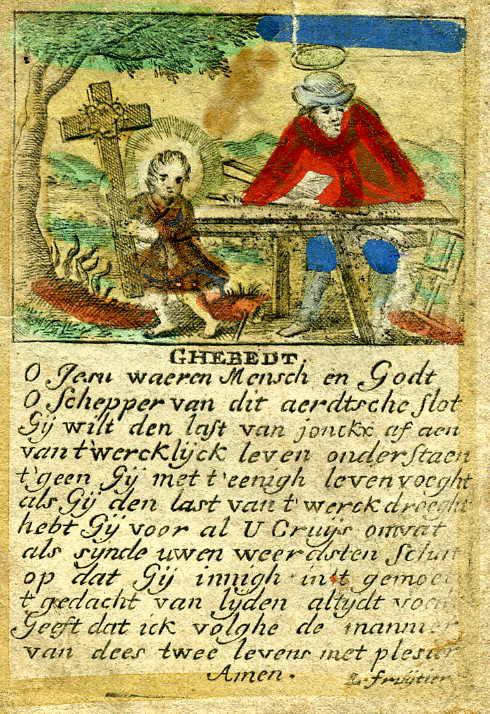 GHEBEDT.
O Jesu waeren Mensch en Godt
O Schepper van dit aerdtsche slot
Gij wilt den last van jonckx af aen
van t'wercklijck leven onderstaen
t'geen Gij met t'eenigh leven voeght
als Gij den last van t'werck droeght
hebt Gij voor al U Cruijs omvat
als synde uwen weerdsten
op dat Gij innigh in't
t'gedacht van lijden altydt
Geeft dat ick volghe de mannier
van dees twee levens met plesier
Amen.
L. fruijtier